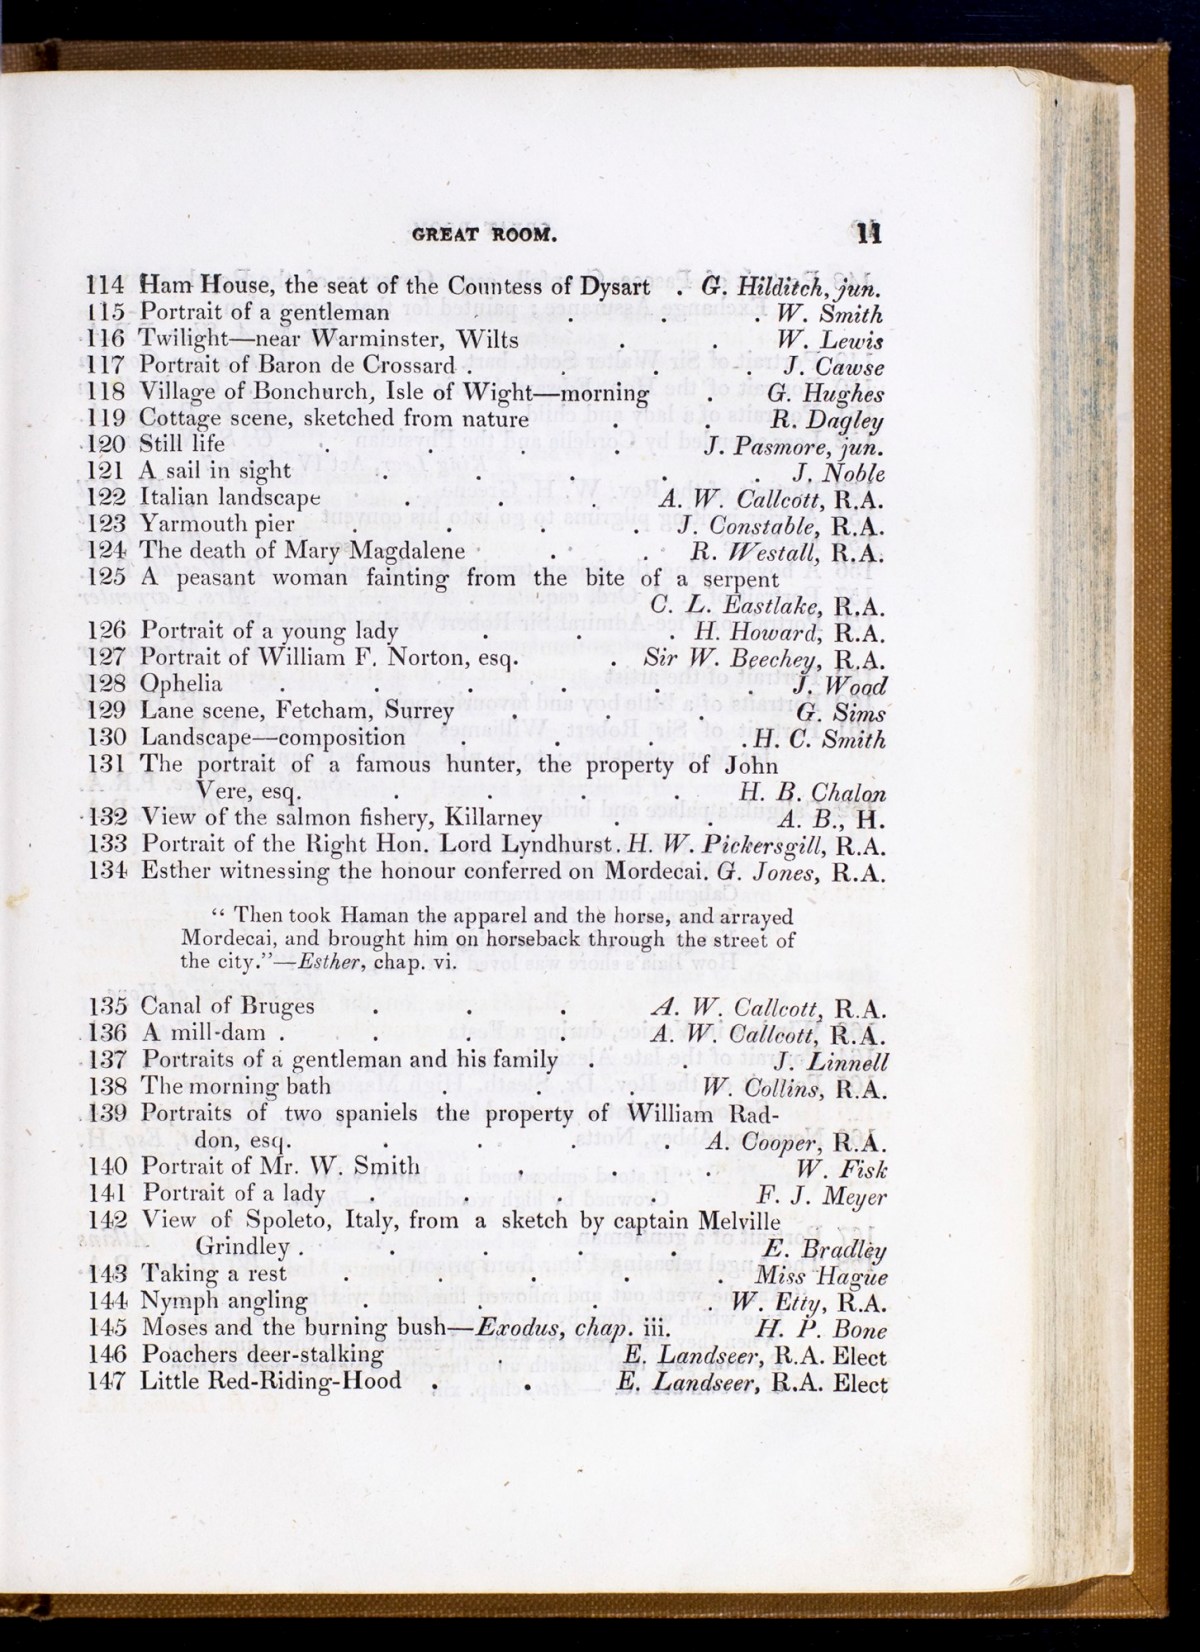 GREAT ROOM. 11
114 Ham House, the seat of the Countess of Dysart . G. Hilditch, jun.
115 Portrait of a gentleman . . . W. Smith
116 Twilight—near Warminster, Wilts . . W. Lewis
117 Portrait of Baron de Crossard . . . . J. Cawse
118 Village of Bonchurch, Isle of Wight—morning . G. Hughes
119 Cottage scene, sketched from nature . . R. Dagley
120 Still life . . . . J. Pasmore, jun.
121 A sail in sight . . . . . J. Noble
122 Italian landscape . . . A. W. Callcott, R.A.
123 Yarmouth pier . . . . J. Constable, R.A.
124 The death of Mary Magdalene . . R. Westall, R.A.
125 A peasant woman fainting from the bite of a serpent
C. L. Eastlake, R.A.
126 Portrait of a young lady . . . H. Howard, R.A.
127 Portrait of William F. Norton, esq. . Sir W. Beechey, R.A.
128 Ophelia . . . . . . J. Wood
129 Lane scene, Fetcham, Surrey . . . G. Sims
130 Landscape—composition . . . . H. C. Smith
131 The portrait of a famous hunter, the property of John
Vere, esq. . . . . H. B. Chalon
132 View of the salmon fishery, Killarney . . A. B., H.
133 Portrait of the Right Hon. Lord Lyndhurst. H. W. Pickersgill, R.A.
134 Esther witnessing the honour conferred on Mordecai. G. Jones, R.A.
“ Then took Haman the apparel and the horse, and arrayed
Mordecai, and brought him on horseback through the street of
the city.”—Esther, chap. vi.
135 Canal of Bruges . . . A. W. Callcott, R.A.
136 A mill-dam . . . . A. W. Callcott, R.A.
137 Portraits of a gentleman and his family . . J. Linnell
138 The morning bath . . . W. Collins, R.A.
139 Portraits of two spaniels the property of William Rad-
don, esq. . . . . A. Cooper, R.A.
140 Portrait of Mr. W. Smith . . . W. Fisk
141 Portrait of a lady . . . . F. J. Meyer
142 View of Spoleto, Italy, from a sketch by captain Melville
Grindley . . . . . E. Bradley
143 Taking a rest . . . . . Miss Hague
144 Nymph angling . . . . W. Etty, R.A.
145 Moses and the burning bush—Exodus, chap. iii. H. P. Bone
146 Poachers deer-stalking . E. Landseer, R.A. Elect
147 Little Red-Riding-Hood . . E. Landseer, R.A. Elect